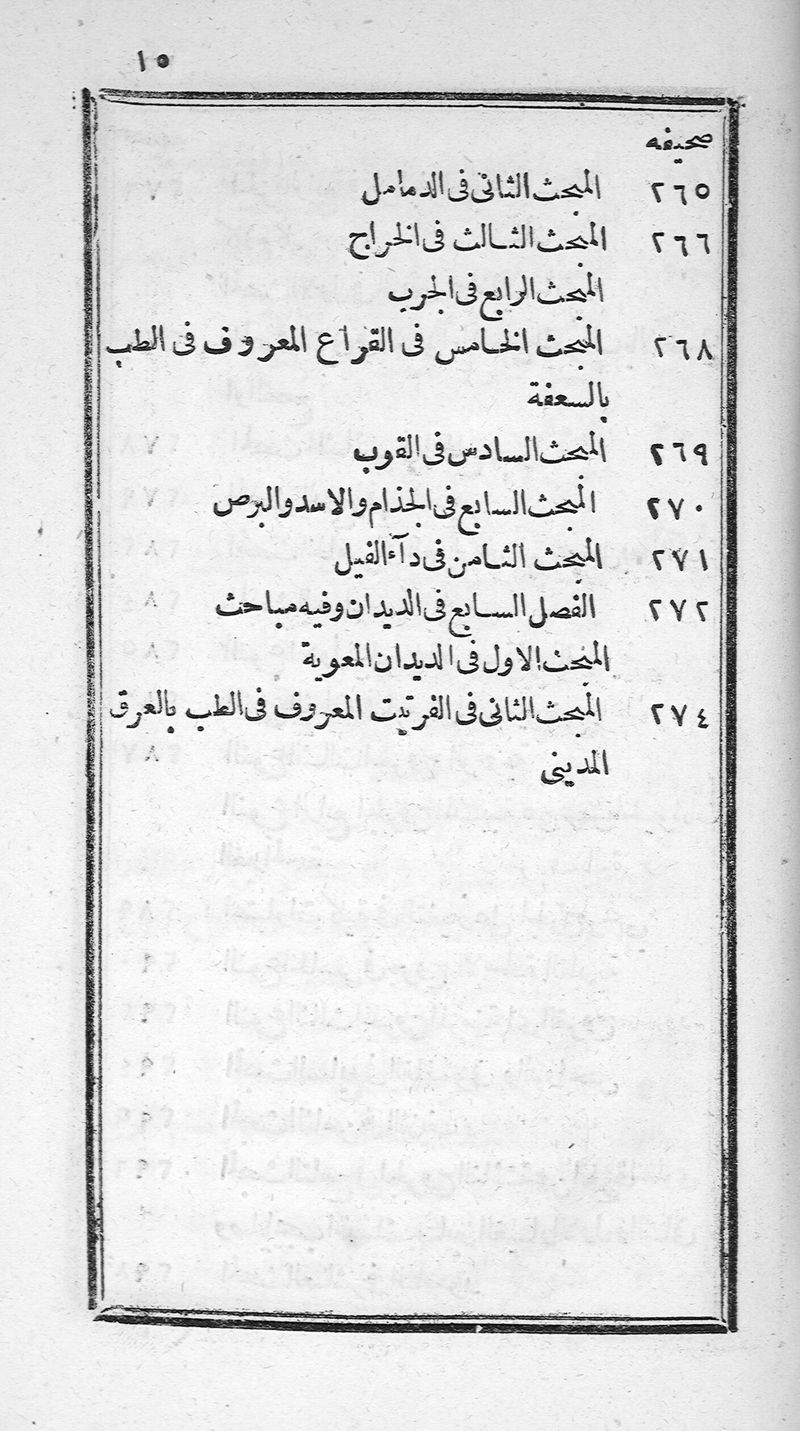 ١٥
صحيفه
٢٦٥ المبحث الثانى فى الدمامل
٢٦٦ المبحث الثالث فى الخراج
المبحث الرابع فى الجرب
٢٦٨ المبحث الخامس فى القراع المعروف فى الطب
بالسعفة
٢٦٩ المبحث السادس فى القوب
٢٧٠ المبحث السابع فى الجذام والاسد والبرص
٢٧١ المبحث الثامن فى دآء الفيل
٢٧٢ الفصل السابع فى الديدان وفيه مباحث
المبحث الاول فى الديدان المعوية
٢٧٤ المبحث الثانى فى الفرتيت المعروف فى الطب بالعرق
المدينى